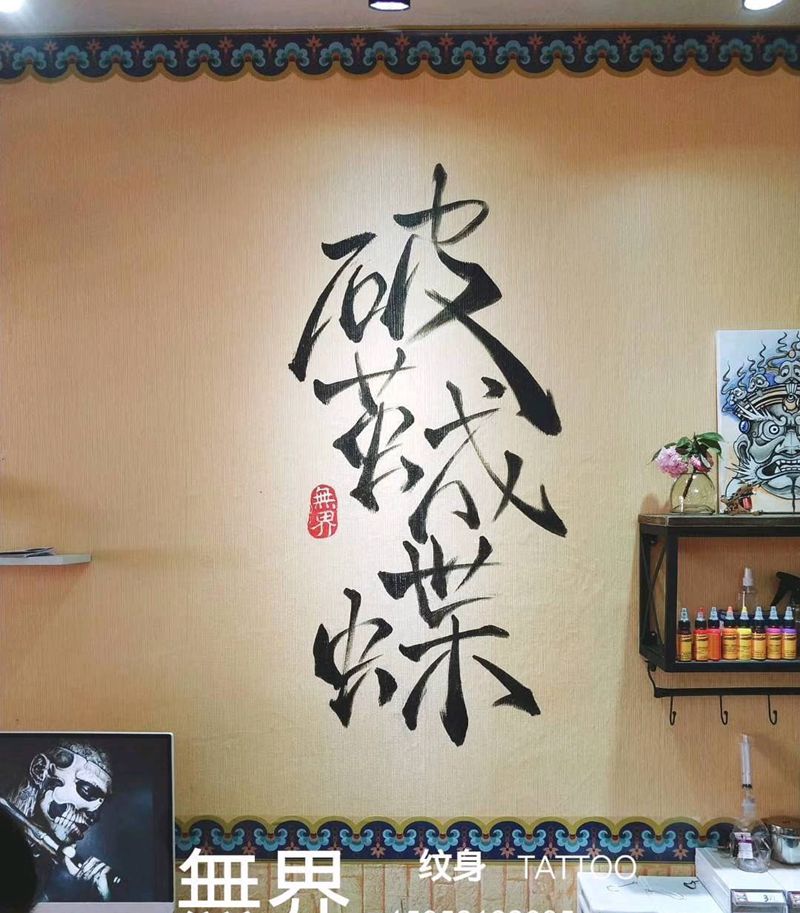 破茧成蝶
無界
無界
纹身 TATTOO